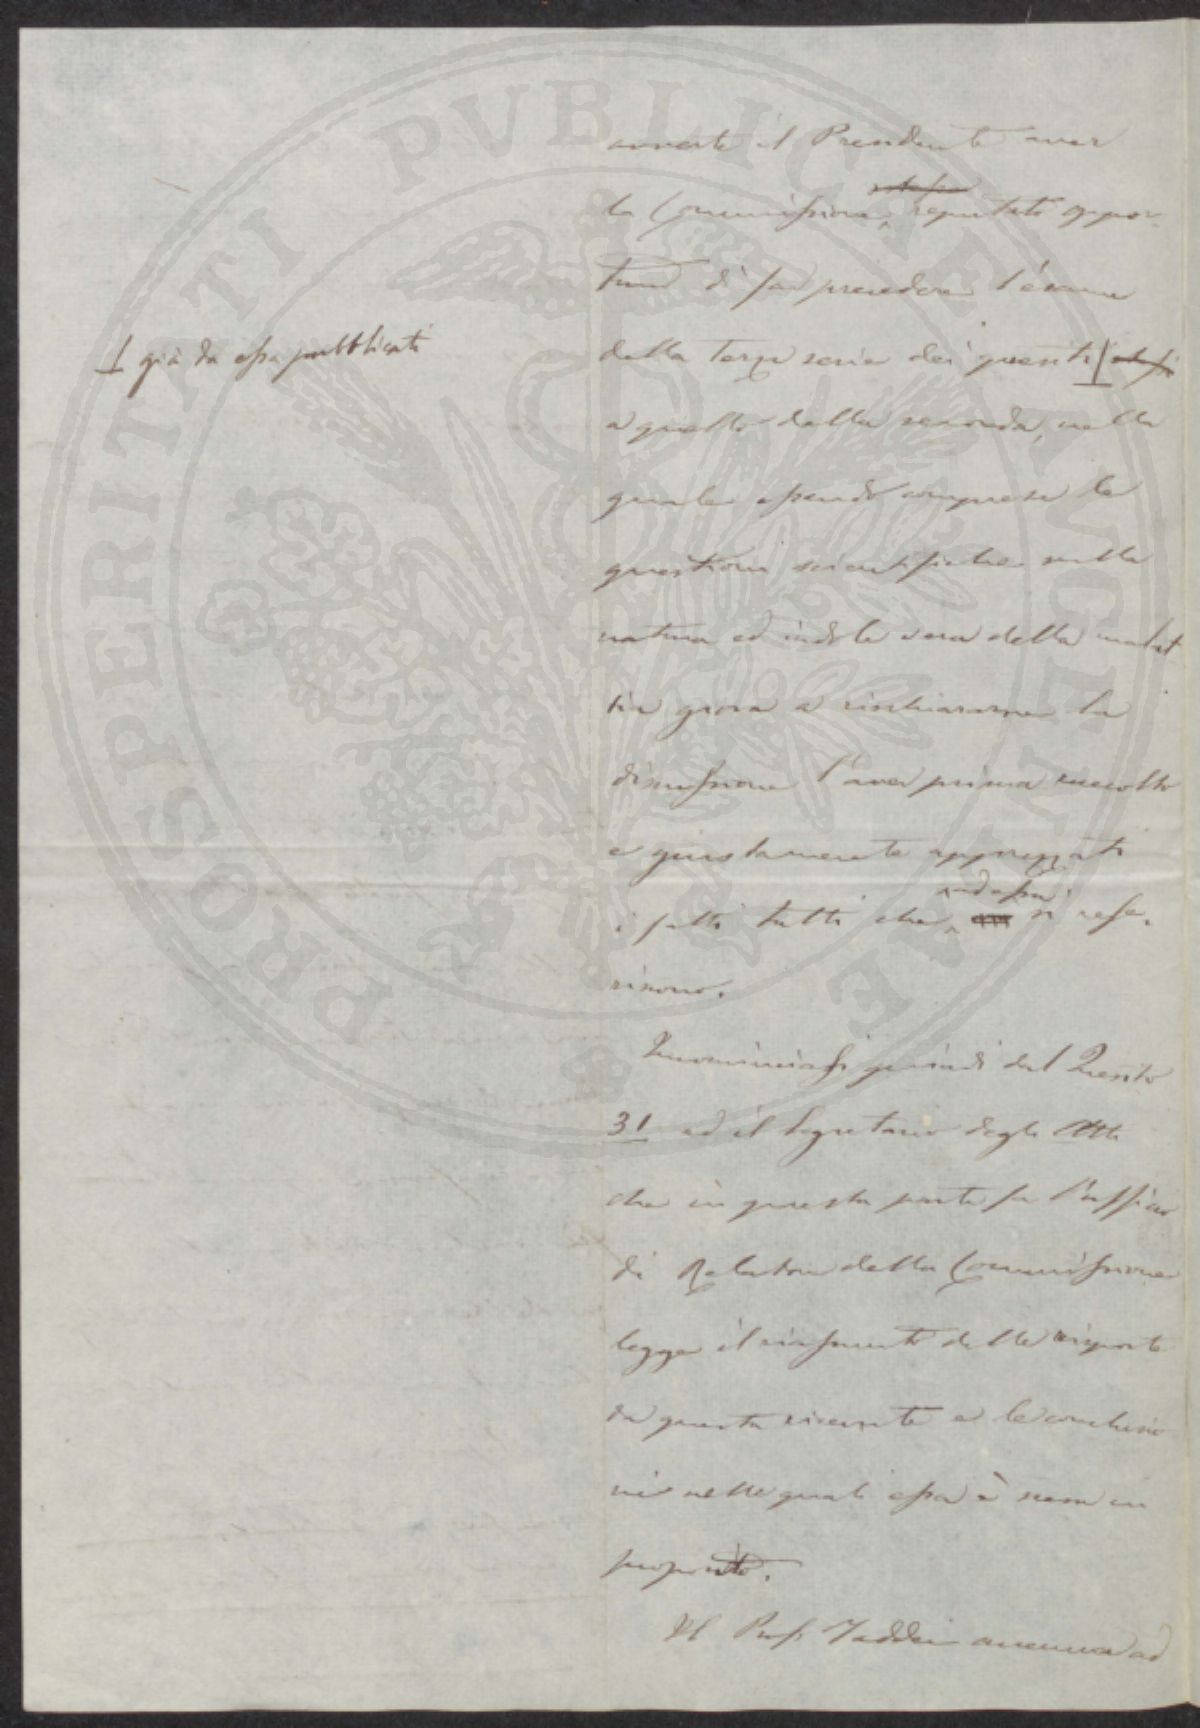 PROSPERITATI PVBLICAE AVGENDAE
avverte il Presidente aver
la Commissione, reputato oppor-
tuno di far precedere l'esame
della terza serie dei quesiti
⊥ già da essa pubblicati
a quello della seconda, nella
quale essendo comprese le
questioni scientifiche sulla
natura ed indole vera della malat
tia giova a rischiararne la
discussione l'aver prima raccolto
e giustamente apprezzati
ad essa
i fatti tutti che si rife-
riscono.
Incominciasi quindi dal Quesito
31 ed il Segretario degli Atti
che in questa parte fa l'ufficio
di Relatore della Commissione
legge il riassunto delle risposte
da questa ricevute e le conclusio
ni nelle quali essa è scesa in
proposito.
Il Prof. Taddei accenna ad